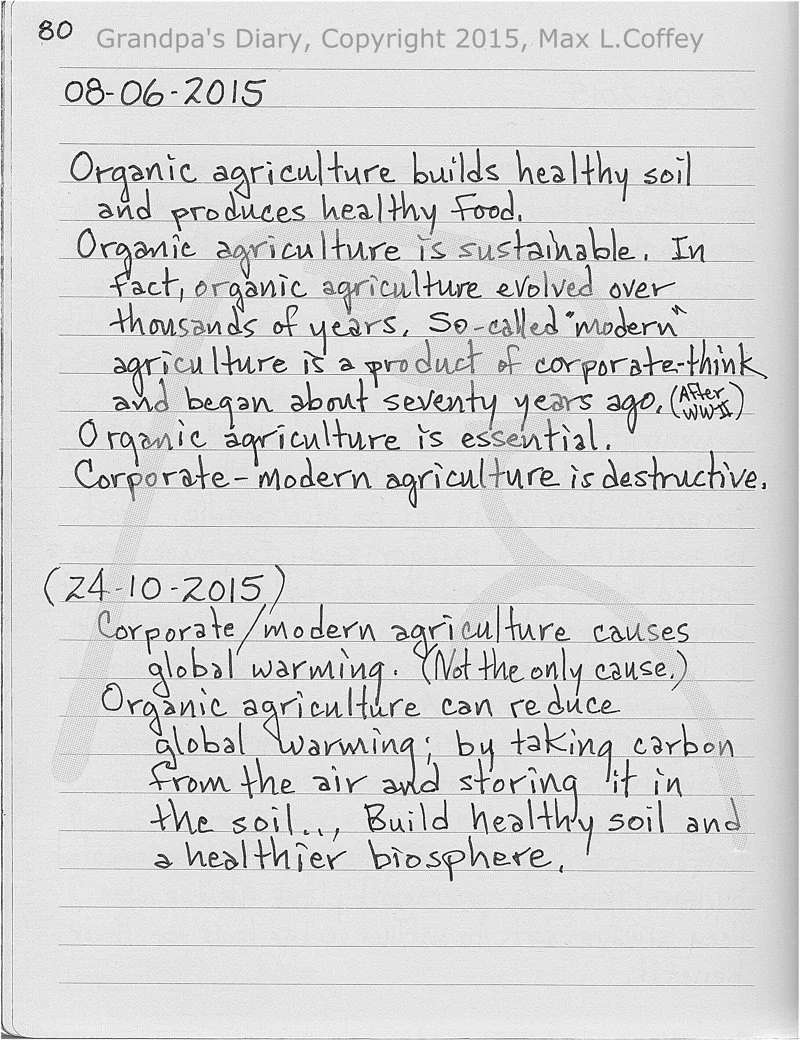 80
Grandpa's Diary, Copyright 2015, Max L.Coffey
08-06-2015
Organic agriculture builds healthy soil
and produces healthy food.
Organic agriculture is sustainable. In
fact, organic agriculture evolved over
thousands of years. So-called "modern"
agriculture is a product of corporate-think
and began about seventy years ago. (After
WW-II)
Organic agriculture is essential.
Corporate-modern agriculture is destructive.
(24-10-2015)
Corporate/modern agriculture causes
global warming. (Not the only cause.)
Organic agriculture can reduce
global warming; by taking carbon
from the air and storing it in
the soil..., Build healthy soil and
a healthier biosphere.